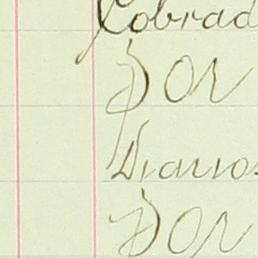 Cobrad
Por
Diarios
Por